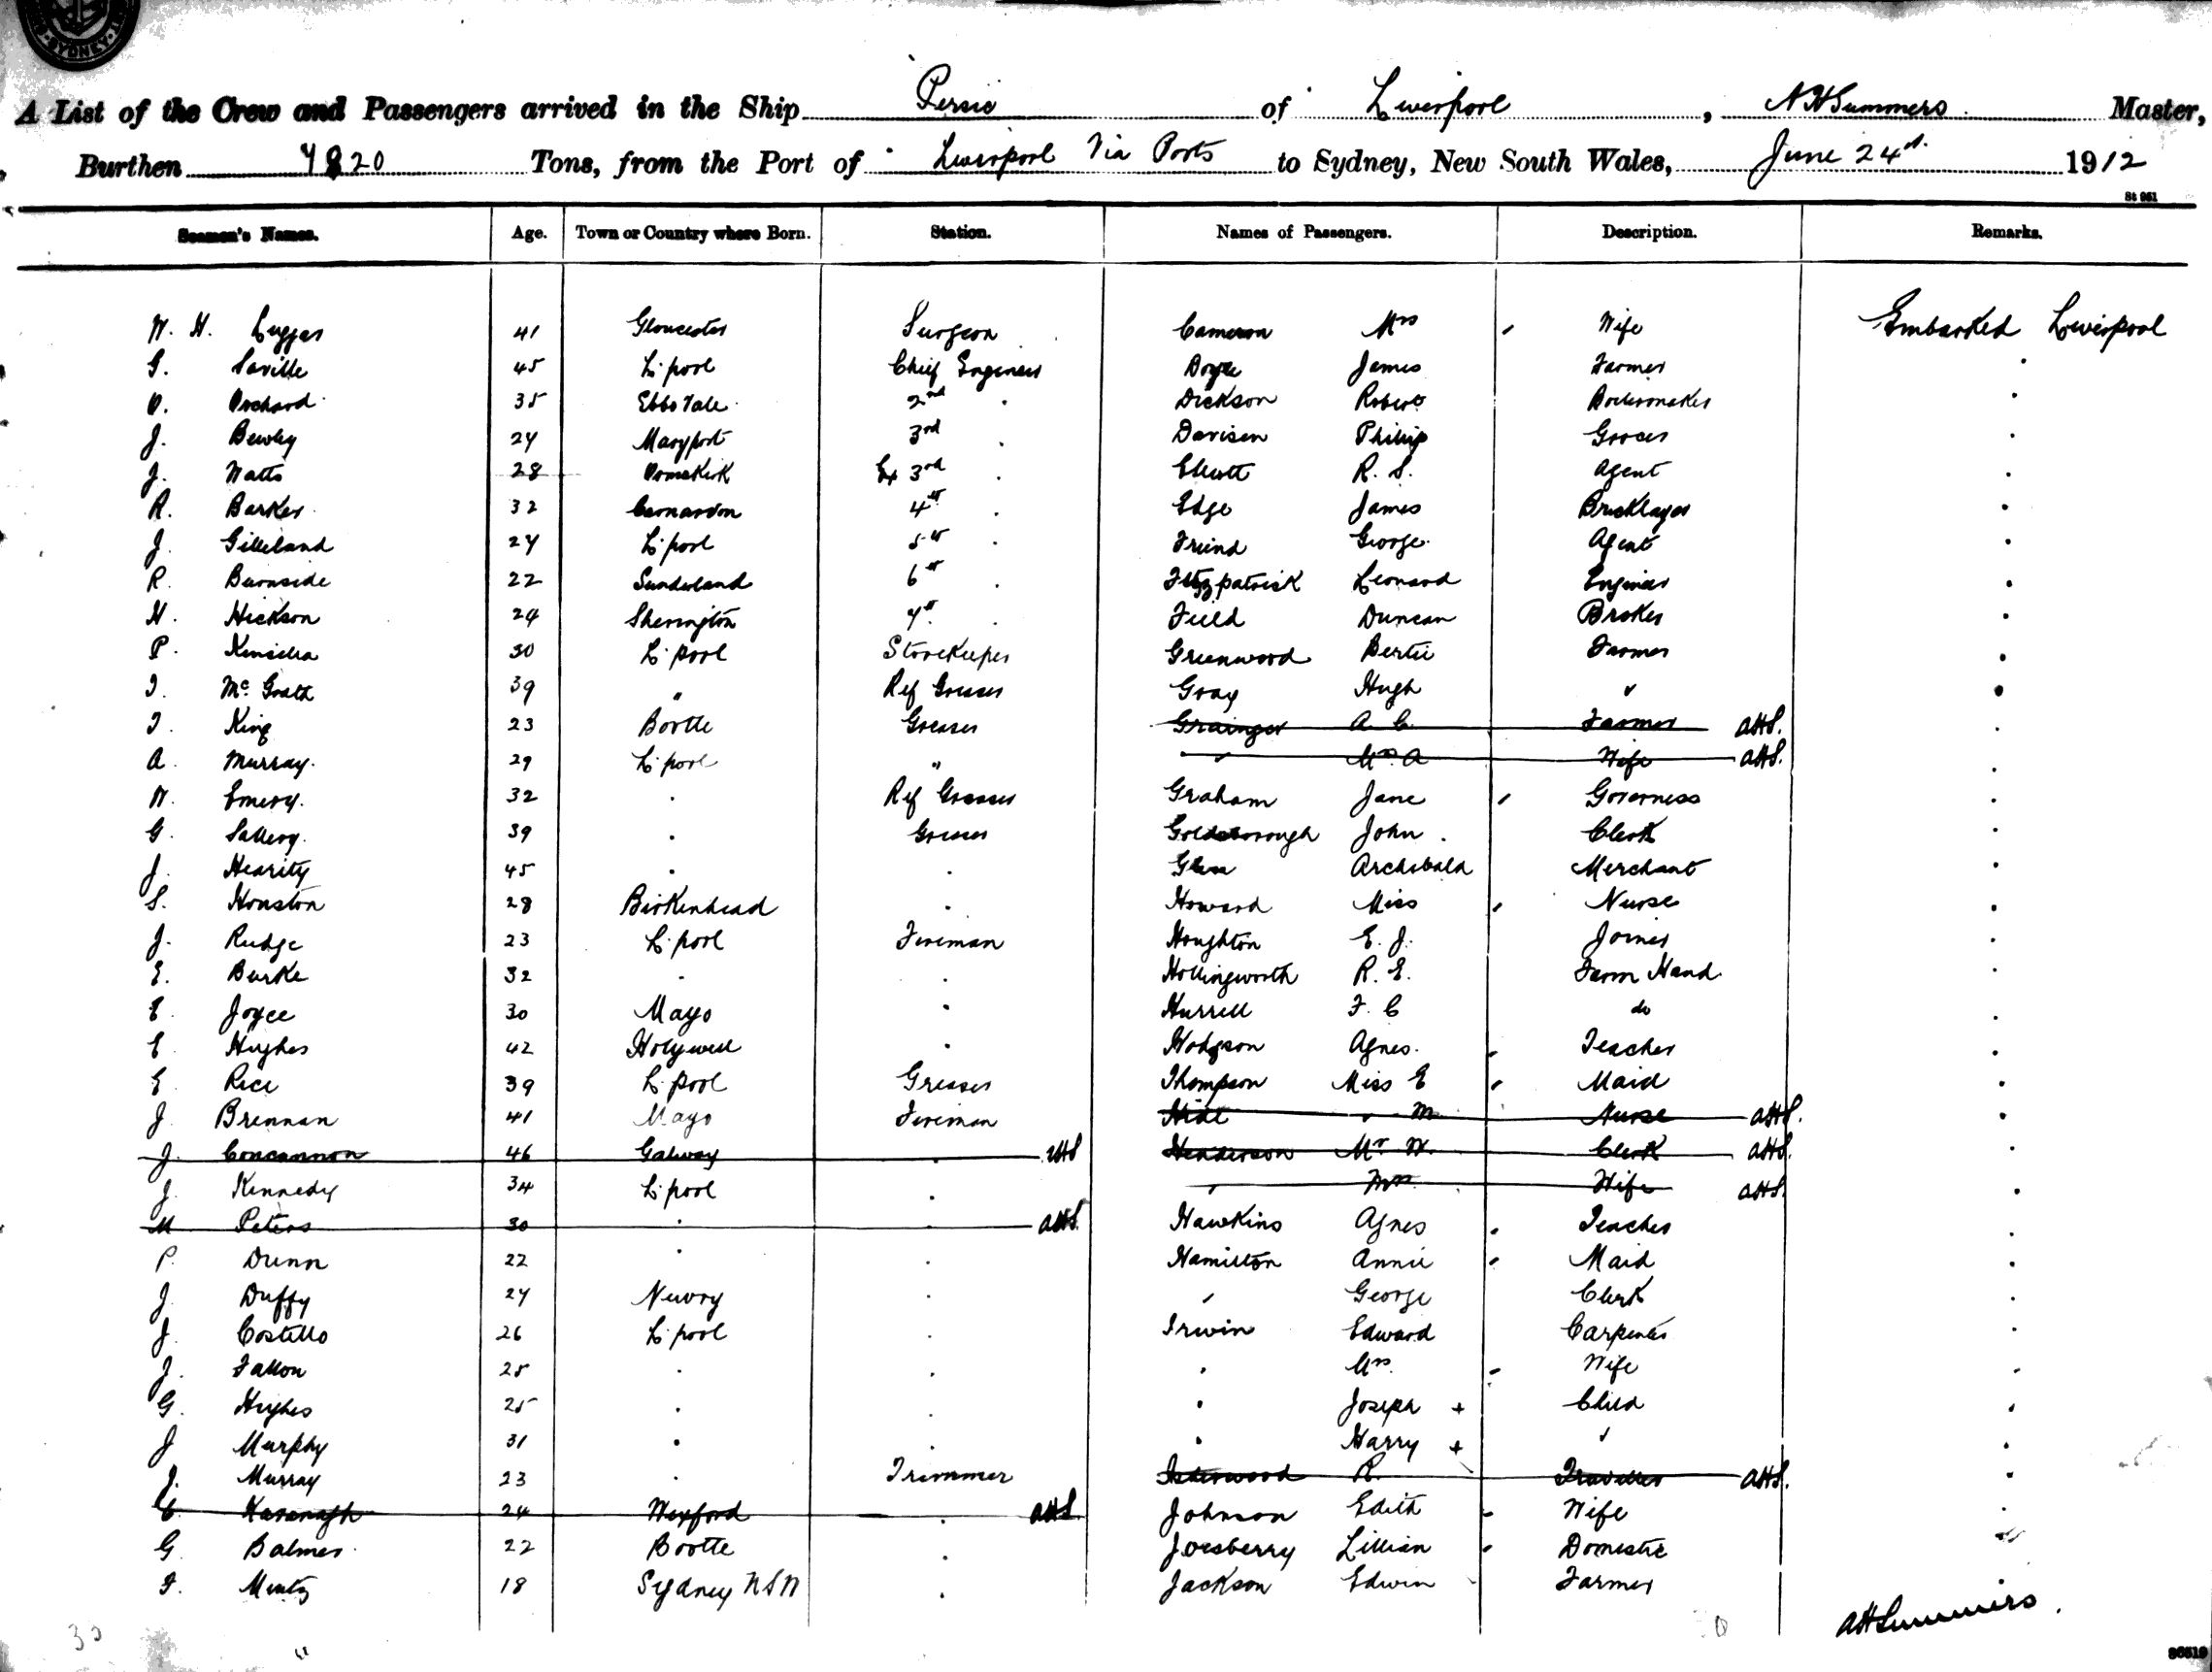 SYDNEY
A List of the Crew and Passengers arrived in the Ship Persic of Liverpool, A H Summers Master,
Burthen 7820 Tons, from the Port of Liverpool Via Ports to Sydney, New South Wales, June 24th 1912
St 961
Seamen's Names. Age. Town or Country where Born. Station. Names of Passengers. Description. Remarks.
W. H. Luggar 41 Gloucester Surgeon Cameron Mrs Wife Embarked Liverpool
G. Saville 45 L'pool Chief Engineer Doyle James Farmer
O. Orchard 35 Ebbs Vale 2nd Dickson Robert Boilermaker
J. Bewley 27 Maryport 3rd Davison Philip Grocer
J. Watts 28 Ormskirk Ex 3rd Elliott R. S. Agent
R. Barker 32 Carnarvon 4th Edge James Bricklayer
J. Gilleland 27 L'pool 5th Friend George Agent
R. Burnside 22 Sunderland 6th Fitzpatrick Leonard Engineer
H. Hickson 24 Sherington 7th Field Duncan Broker
P. Kinsella 30 L'pool Storekeeper Greenwood Bertie Farmer
T. McGrath 39 " Ref Greaser Gray Hugh "
T. King 23 Bootle Greaser Grainger A. C. Farmer AHS.
A. Murray 29 L'pool " " Mrs A Wife AHS.
W. Emery. 32 . Ref Greaser Graham Jane Governess
G. Sallery. 39 . Greaser Goldsborough John Clerk
J. Hearity 45 . . Glen Archibald Merchant
S. Houston 28 Birkenhead . Howard Miss Nurse
J. Rudge 23 L'pool Fireman Houghton E. J. Joiner
E. Burke 32 . . Hollingworth R. E. Farm Hand
E. Joyce 30 Mayo . Hurrell F. C do
E. Hughes 42 Holywell . Hodgson Agnes. Teacher
E. Rice 39 L'pool Greaser Thompson Miss E Maid
J. Brennan 41 Mayo Fireman Hide " M Nurse AHS.
J. Concannon 46 Galway . AHS Henderson Mr W. Clerk AHS.
J. Kennedy 34 L'pool . " Mrs. Wife AHS.
M Peters 30 . . AHS. Hawkins Agnes Teacher
P. Dunn 22 . . Hamilton Annie Maid
J. Duffy 27 Newry . " George Clerk
J. Costello 26 L'pool . Irwin Edward Carpenter
J. Fallon 25 . . " Mrs. Wife
G. Hughes 25 . . " Joseph + Child
J Murphy 31 . . " Harry + "
J. Murray 23 . Trimmer Isherwood R. Traveller AHS.
C. Kavanagh 24 Wexford . AHS. Johnson Edith Wife
G. Balmer 22 Bootle . Joesberry Lillian Domestic
F. Mentz 18 Sydney NSW . Jackson Edwin Farmer
AHSummers.